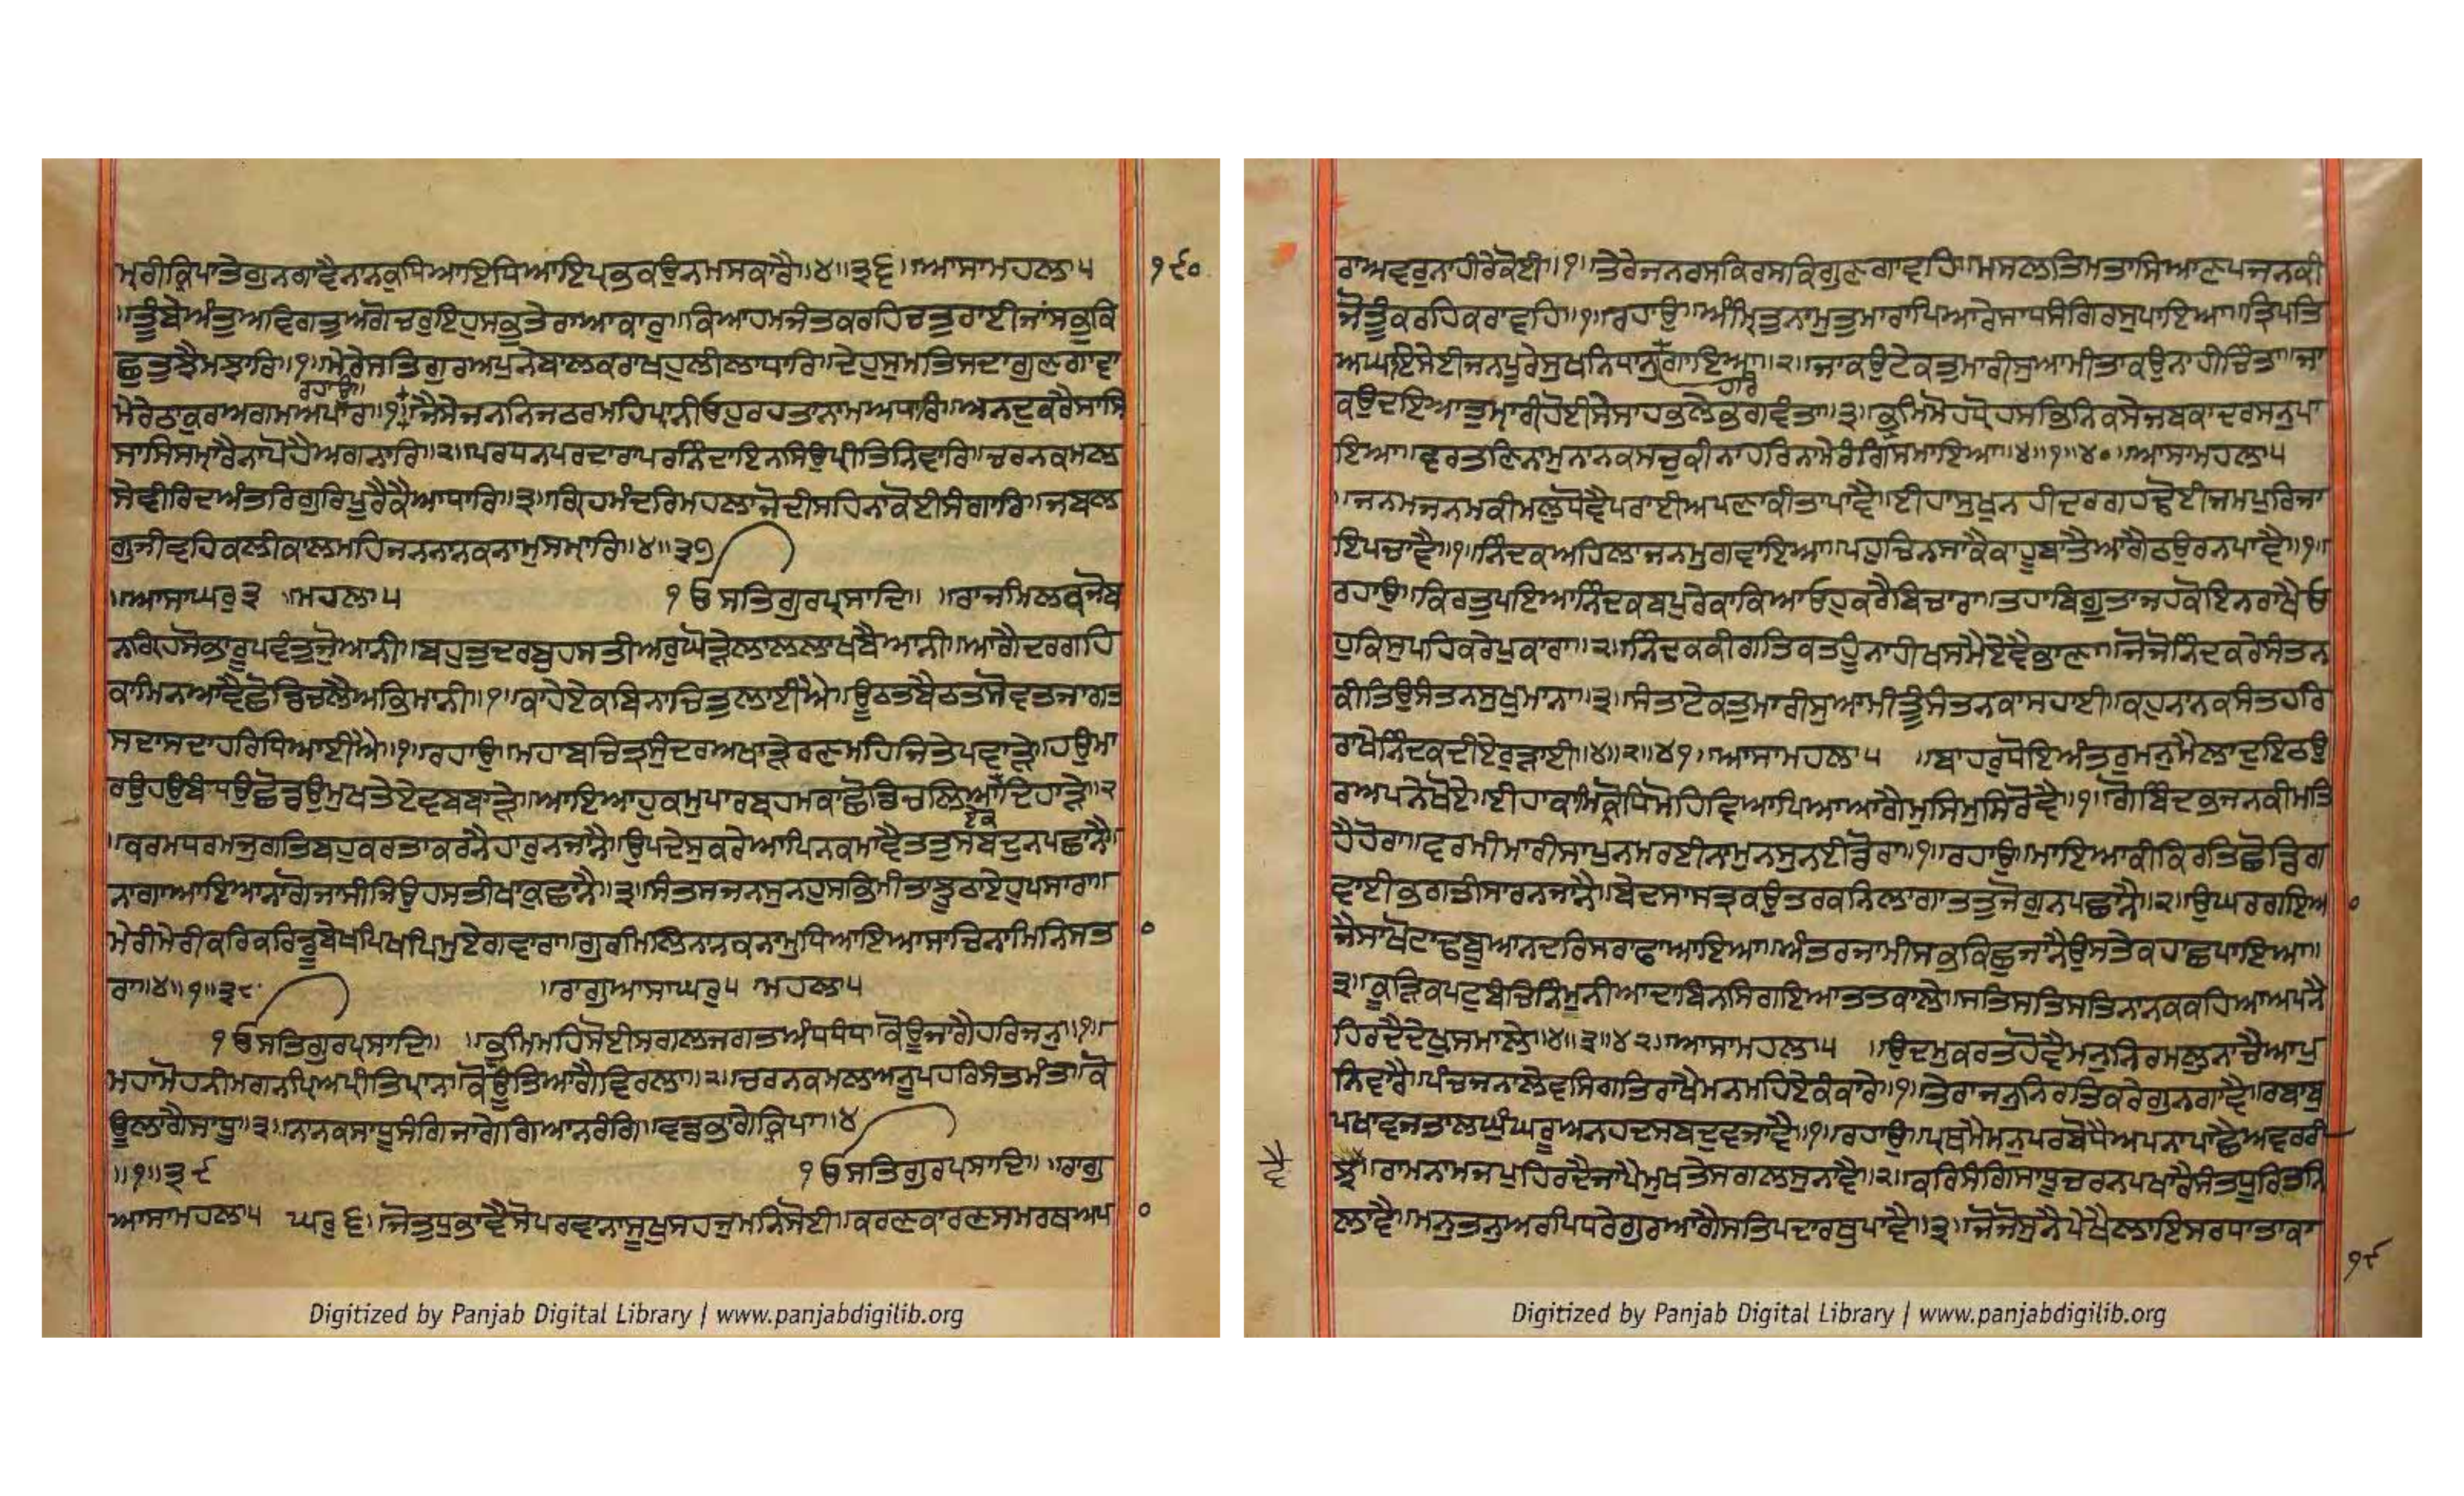 ਮ੍ਰਰੀਕ੍ਰਿਪਾਤੇਗੁਨਗਾਵੈਨਾਨਕਧਿਆਇਧਿਆਇਪ੍ਰਭਕਉਨਮਸਕਾਰੈ॥੪॥੩੬॥ਆਸਾਮਹਲਾ੫
੧੯੦
॥ਤੂੰਬੇਅੰਤੁਅਵਿਗਤੁਅਗੋਚਰੁਇਹੁਸਭੁਤੇਰਾਆਕਾਰੁ॥ਕਿਆਹਮਜੰਤਕਰਹਿਚਤੁਰਾਈਜਾਂਸਭੁਕਿ
ਛੁਤੁਝੈਮਝਾਰਿ॥੧॥ਮੇਰੇਸਤਿਗੁਰਅਪੁਨੇਬਾਲਕਰਾਖਹੁਲੀਲਾਧਾਰਿ॥ਦੇਹੁਸੁਮਤਿਸਦਾਗੁਣਗਾਵਾ
ਰਹਾਉ॥
ਮੇਰੇਠਾਕੁਰਅਗਮਅਪਾਰ॥੧॥ਜੈਸੇਜਨਨਿਜਠਰਮਹਿਪ੍ਰਾਨੀਓਹੁਰਹਤਾਨਾਮਅਧਾਰਿ॥ਅਨਦੁਕਰੈਸਾਸਿ
ਸਾਸਿਸਮ੍ਰਾਰੈਨਾਪੋਹੈਅਗਨਾਰਿ॥੨॥ਪਰਧਨਪਰਦਾਰਾਪਰਨਿੰਦਾਇਨਸਿਉਪ੍ਰੀਤਿਨਿਵਾਰਿ॥ਚਰਨਕਮਲ
ਸੇਵੀਰਿਦਅੰਤਰਿਗੁਰਿਪੂਰੈਕੈਆਧਾਰਿ॥੩॥ਗ੍ਰਿਹਮੰਦਰਿਮਹਲਾਜੋਦੀਸਹਿਨਾਕੋਈਸੰਗਾਰਿ॥ਜਬਲ
ਗੁਜੀਵਹਿਕਲੀਕਾਲਮਹਿਜਨਨਾਨਕਨਾਮੁਸਮ੍ਰਾਰਿ॥੪॥੩੭
॥ਆਸਾਘਰੁ੩ ॥ਮਹਲਾ੫ ੴਸਤਿਗੁਰਪ੍ਰਸਾਦਿ॥ ॥ਰਾਜਮਿਲਕਜੋਬ
ਨਗ੍ਰਿਹਸੋਭਾਰੂਪਵੰਤੁਜੋੁਆਨੀ॥ਬਹੁਤੁਦਰਬੁਹਸਤੀਅਰੁਘੋੜੇਲਾਲਲਾਖਬੈਆਨੀ॥ਆਗੈਦਰਗਹਿ
ਕਾਮਿਨਆਵੈਛੋਡਿਚਲੈਅਭਿਮਾਨੀ॥੧॥ਕਾਹੇਏਕਬਿਨਾਚਿਤੁਲਾਈਐ॥ਊਠਤਬੈਠਤਸੋਵਤਜਾਗਤ
ਸਦਾਸਦਾਹਰਿਧਿਆਈਐ॥੧॥ਰਹਾਉ॥ਮਹਾਬਚਿਤ੍ਰਸੁੰਦਰਅਖਾੜੇਰਣਮਹਿਜਿਤੇਪਵਾੜੇ॥ਹਉਮਾ
ਰਉਹਉਬੰਧਉਛੋਡਉਮੁਖਤੇਏਵਬਬਾੜੇ॥ਆਇਆਹੁਕਮੁਪਾਰਬ੍ਰਹਮਕਾਛੋਡਿਚਲਿਆਦਿਹਾੜੇ॥੨
ਏਕ
॥ਕਰਮਧਰਮਜੁਗਤਿਬਹੁਕਰਤਾਕਰਨੈਹਾਰੁਨਜਾਨੈ॥ਉਪਦੇਸੁਕਰੇਆਪਿਨਕਮਾਵੈਤਤੁਸਬਦੁਨਪਛਾਨੈ
ਨਾਗਾਆਇਆਨਾਗੋਜਾਸੀਜਿਉਹਸਤੀਖਾਕੁਛਾਨੈ॥੩॥ਸੰਤਸਜਨਸੁਨਹੁਸਭਿਮੀਤਾਝੂਠਾਏਹੁਪਸਾਰਾ॥
ਮੇਰੀਮੇਰੀਕਰਿਕਰਿਡੂਬੇਖਪਿਖਪਿਮੁਏਗਵਾਰਾ॥ਗੁਰਮਿਲਿਨਾਨਕਨਾਮੁਧਿਆਇਆਸਾਚਿਨਾਮਿਨਿਸਤਾ
ਰਾ॥੪॥੧॥੩੮ ॥ਰਾਗੁਆਸਾਘਰੁ੫ ਮਹਲਾ੫
ੴਸਤਿਗੁਰਪ੍ਰਸਾਦਿ॥ ॥ਭ੍ਰਮਿਮਹਿਸੋਈਸਗਲਜਗਤਅੰਧਧੰਧ॥ਕੋਊਜਾਗੈਹਰਿਜਨੁ॥੧॥
ਮਹਾਮੋਹਨੀਮਗਨਪ੍ਰਿਅਪ੍ਰੀਤਿਪ੍ਰਾਨ॥ਕੋਊਤਿਆਗੈਵਿਰਲਾ॥੨॥ਚਰਨਕਮਲਆਨੂਪਹਰਿਸੰਤਮੰਤ॥ਕੋ
ਊਲਾਗੈਸਾਧੂ॥੩॥ਨਾਨਕਸਾਧੂਸੰਗਿਜਾਗੇਗਿਆਨਰੰਗਿ॥ਵਡਭਾਗੇਕ੍ਰਿਪਾ॥੪
॥੧॥੩੯ ੴਸਤਿਗੁਰਪ੍ਰਸਾਦਿ॥ ॥ਰਾਗੁ
ਆਸਾਮਹਲਾ੫ ਘਰੁ੬॥ਜੋਤੁਧੁਭਾਵੈਸੋਪਰਵਾਨਾਸੂਖੁਸਹਜੁਮਨਿਸੋਈ॥ਕਰਣਕਾਰਣਸਮਰਥਅਪਾ
Digitized by Panjab Digital Library | www.panjabdigilib.org
ਰਾਅਵਰੁਨਾਹੀਰੇਕੋਈ॥੧॥ਤੇਰੇਜਨਰਸਕਿਰਸਕਿਗੁਣਗਾਵਹਿ॥ਮਸਲਤਿਮਤਾਸਿਆਣਪਜਨਕੀ
ਜੋਤੂੰਕਰਹਿਕਰਾਵਹਿ॥੧॥ਰਹਾਉ॥ਅੰਮ੍ਰਿਤੁਨਾਮੁਤੁਮਾਰਾਪਿਆਰੇਸਾਧਸੰਗਿਰਸੁਪਾਇਆ॥ਤ੍ਰਿਪਤਿ
ਅਘਾਇਸੇਈਜਨਪੂਰੇਸੁਖਨਿਧਾਨੁਗਾਇਆ॥੨॥ਜਾਕਉਟੇਕਤੁਮਾਰੀਸੁਆਮੀਤਾਕਉਨਾਹੀਚਿੰਤਾ॥ਜਾ
ਹਰਿ
ਕਉਦਇਆਤੁਮਾਰੀਹੋਈਸੇਸਾਹਭਲੇਭਗਵੰਤਾ॥੩॥ਭ੍ਰਮਿਮੋਹਧ੍ਰੋਹਸਭਿਨਿਕਸੇਜਬਕਾਦਰਸਨੁਪਾ
ਇਆ॥ਵਰਤਣਿਨਾਮੁਨਾਨਕਸਚੁਕੀਨਾਹਰਿਨਾਮੇਰੰਗਿਸਮਾਇਆ॥੪॥੧॥੪੦॥ਆਸਾਮਹਲਾ੫
॥ਜਨਮਜਨਮਕੀਮਲੁਧੋਵੈਪਰਾਈਅਪਣਾਕੀਤਾਪਾਵੈ॥ਈਹਾਸੁਖੁਨਹੀਦਰਗਹਢੋਈਜਮਪੁਰਿਜਾ
ਇਪਚਾਵੈ॥੧॥ਨਿੰਦਕਅਹਿਲਾਜਨਮੁਗਵਾਇਆ॥ਪਹੁਚਿਨਸਾਕੈਕਾਹੂਬਾਤੈਆਗੈਠਉਰਨਪਾਵੈ॥੧॥
ਰਹਾਉ॥ਕਿਰਤੁਪਇਆਨਿੰਦਕਬਪੁਰੇਕਾਕਿਆਓਹੁਕਰੈਬਿਚਾਰਾ॥ਤਹਾਬਿਗੂਤਾਜਹਕੋਇਨਰਾਖੈਓ
ਹੁਕਿਸੁਪਹਿਕਰੇਪੁਕਾਰਾ॥੨॥ਨਿੰਦਕਕੀਗਤਿਕਤਹੂੰਨਾਹੀਖਸਮੈਏਵੈਭਾਣਾ॥ਜੋਜੋਨਿੰਦਕਰੇਸੰਤਨ
ਕੀਤਿਉਸੰਤਨਸੁਖੁਮਾਨਾ॥੩॥ਸੰਤਾਟੇਕਤੁਮਾਰੀਸੁਆਮੀਤੂੰਸੰਤਨਕਾਸਹਾਈ॥ਕਹੁਨਾਨਕਸੰਤਹਰਿ
ਰਾਖੇਨਿੰਦਕਦੀਏਰੁੜਾਈ॥੪॥੨॥੪੧॥ਆਸਾਮਹਲਾ੫ ॥ਬਾਹਰੁਧੋਇਅੰਤਰੁਮਨੁਮੈਲਾਦੁਇਠਉ
ਰਅਪਨੇਖੋਏ॥ਈਹਾਕਾਮਿਕ੍ਰੋਧਿਮੋਹਿਵਿਆਪਿਆਆਗੈਮੁਸਿਮੁਸਿਰੋਵੈ॥੧॥ਗੋਬਿੰਦਭਜਨਕੀਮਤਿ
ਹੈਹੋਰਾ॥ਵਰਮੀਮਾਰੀਸਾਪੁਨਮਰਈਨਾਮੁਨਸੁਨਈਡੋਰਾ॥੧॥ਰਹਾਉ॥ਮਾਇਆਕੀਕਿਰਤਿਛੋਡਿਗ
ਵਾਈਭਗਤੀਸਾਰਨਜਾਨੈ॥ਬੇਦਸਾਸਤ੍ਰਕਉਤਰਕਨਿਲਾਗਾਤਤੁਜੋਗੁਨਪਛਾਨੈ॥੨॥ਉਘਰਗਇਆ
ਜੈਸਾਖੋਟਾਢਬੂਆਨਦਰਿਸਰਾਫਾਆਇਆ॥ਅੰਤਰਜਾਮੀਸਭੁਕਿਛੁਜਾਨੈਉਸਤੇਕਹਾਛਪਾਇਆ॥
੩॥ਕੂੜਿਕਪਟਬੰਚਿਨਿੰਮੁਨੀਆਦਾਬਿਨਸਿਗਇਆਤਤਕਾਲੇ॥ਸਤਿਸਤਿਸਤਿਨਾਨਕਕਹਿਆਅਪਨੈ
ਹਿਰਦੈਦੇਖੁਸਮਾਲੇ॥੪॥੩॥੪੨॥ਆਸਾਮਹਲਾ੫ ॥ਉਦਮੁਕਰਤਹੋਵੈਮਨੁਨਿਰਮਲੁਨਾਚੈਆਪੁ
ਨਿਵਾਰੇ॥ਪੰਚਜਨਾਲੇਵਸਿਗਤਿਰਾਖੈਮਨਮਹਿਏਕੰਕਾਰੇ॥੧॥ਤੇਰਾਜਨੁਨਿਰਤਿਕਰੇਗੁਨਗਾਵੈ॥ਰਬਾਬੁ
ਪਖਾਵਜਤਾਲਘੁੰਘਰੂਅਨਹਦਸਬਦੁਵਜਾਵੈ॥੧॥ਰਹਾਉ॥ਪ੍ਰਥਮੇਮਨੁਪਰਬੋਧੈਅਪਨਾਪਾਛੈਅਵਰਰੀ
ਝਾ॥ਰਾਮਨਾਮਜਪੁਹਿਰਦੈਜਾਪੈਮੁਖਤੇਸਗਲਸੁਨਾਵੈ॥੨॥ਕਰਿਸੰਗਿਸਾਧੂਚਰਨਪਖਾਰੈਸੰਤਧੂਰਿਤਨਿ
ਵੈ
ਲਾਵੈ॥ਮਨੁਤਨੁਅਰਪਿਧਰੇਗੁਰਆਗੈਸਤਿਪਦਾਰਥੁਪਾਵੈ॥੩॥ਜੋਜੋਸੁਨੈਪੇਖੈਲਾਇਸਰਧਾਤਾਕਾ
੧੯
Digitized by Panjab Digital Library | www.panjabdigilib.org